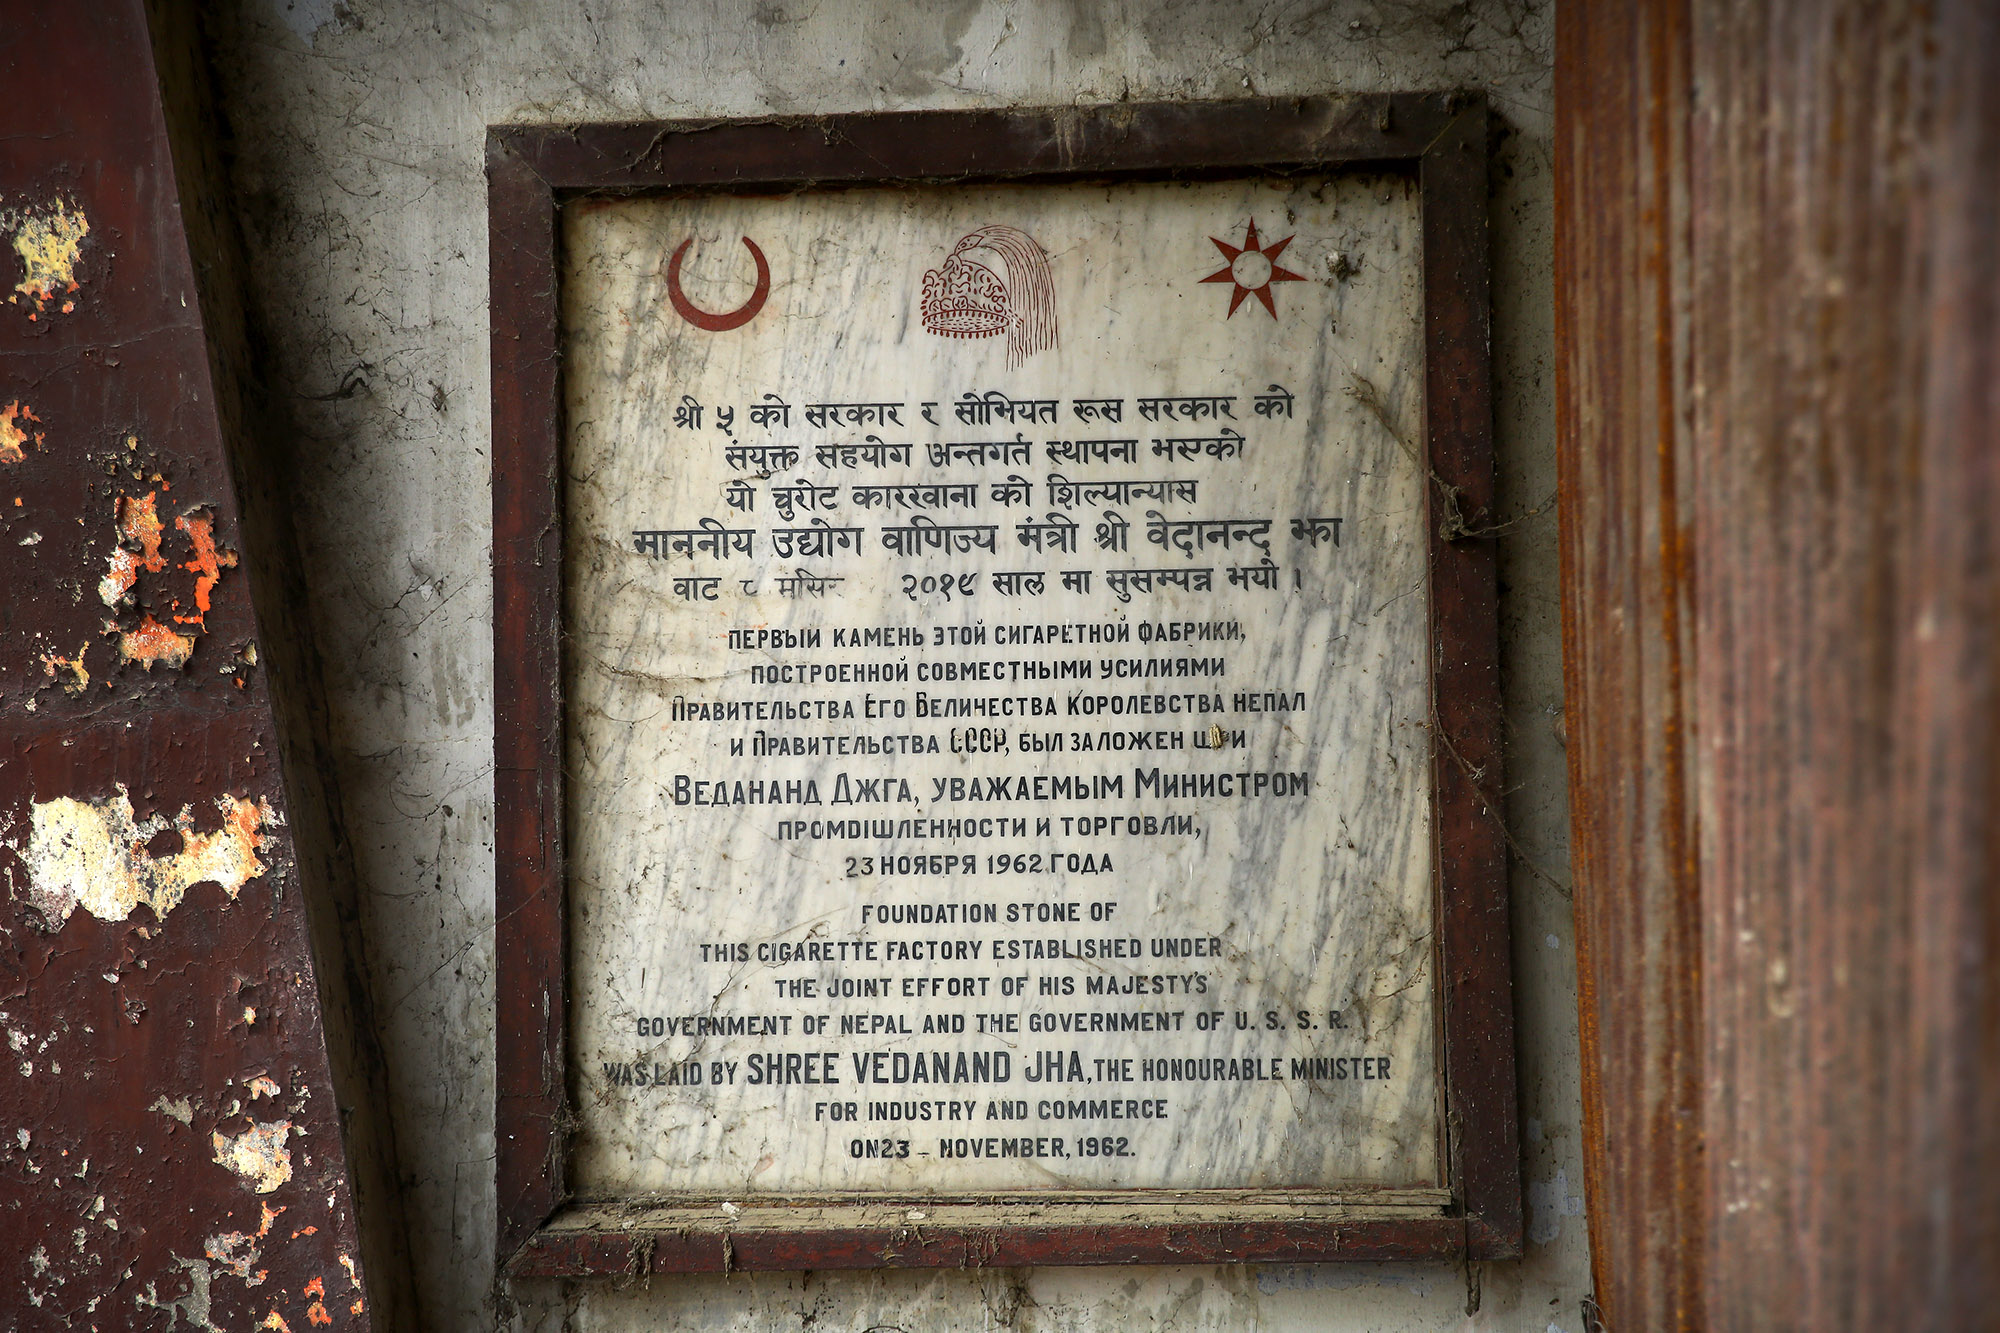 श्री ५ को सरकार र सोभियत रूस सरकार को
संयुक्त सहयोग अन्तगर्त स्थापना भएको
यो चुरोट कारखाना को शिल्यान्यास
माननीय उद्योग वाणिज्य मंत्री श्री वेदानन्द झा
वाट ८ मसिर २०१९ साल मा सुसम्पन्न भयो ।
ПЕРВЫЙ КАМЕНЬ ЭТОЙ СИГАРЕТНОЙ ФАБРИКИ,
ПОСТРОЕННОЙ СОВМЕСТНЫМИ УСИЛИЯМИ
ПРАВИТЕЛЬСТВА ЕГО ВЕЛИЧЕСТВА КОРОЛЕВСТВА НЕПАЛ
И ПРАВИТЕЛЬСТВА СССР, БЫЛ ЗАЛОЖЕН ШРИ
ВЕДАНАНД ДЖГА, УВАЖАЕМЫМ МИНИСТРОМ
ПРОМЫШЛЕННОСТИ И ТОРГОВЛИ,
23 НОЯБРЯ 1962 ГОДА
FOUNDATION STONE OF
THIS CIGARETTE FACTORY ESTABLISHED UNDER
THE JOINT EFFORT OF HIS MAJESTY'S
GOVERNMENT OF NEPAL AND THE GOVERNMENT OF U. S. S. R.
WAS LAID BY SHREE VEDANAND JHA, THE HONOURABLE MINISTER
FOR INDUSTRY AND COMMERCE
ON 23 - NOVEMBER, 1962.